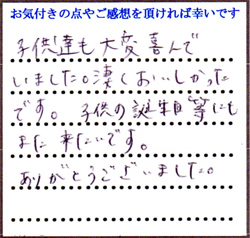 お気付きの点やご感想を頂ければ幸いです
子供達も大変喜んで
いました。凄くおいしかった
です。子供の誕生日等にも
また来たいです。
ありがとうございました。